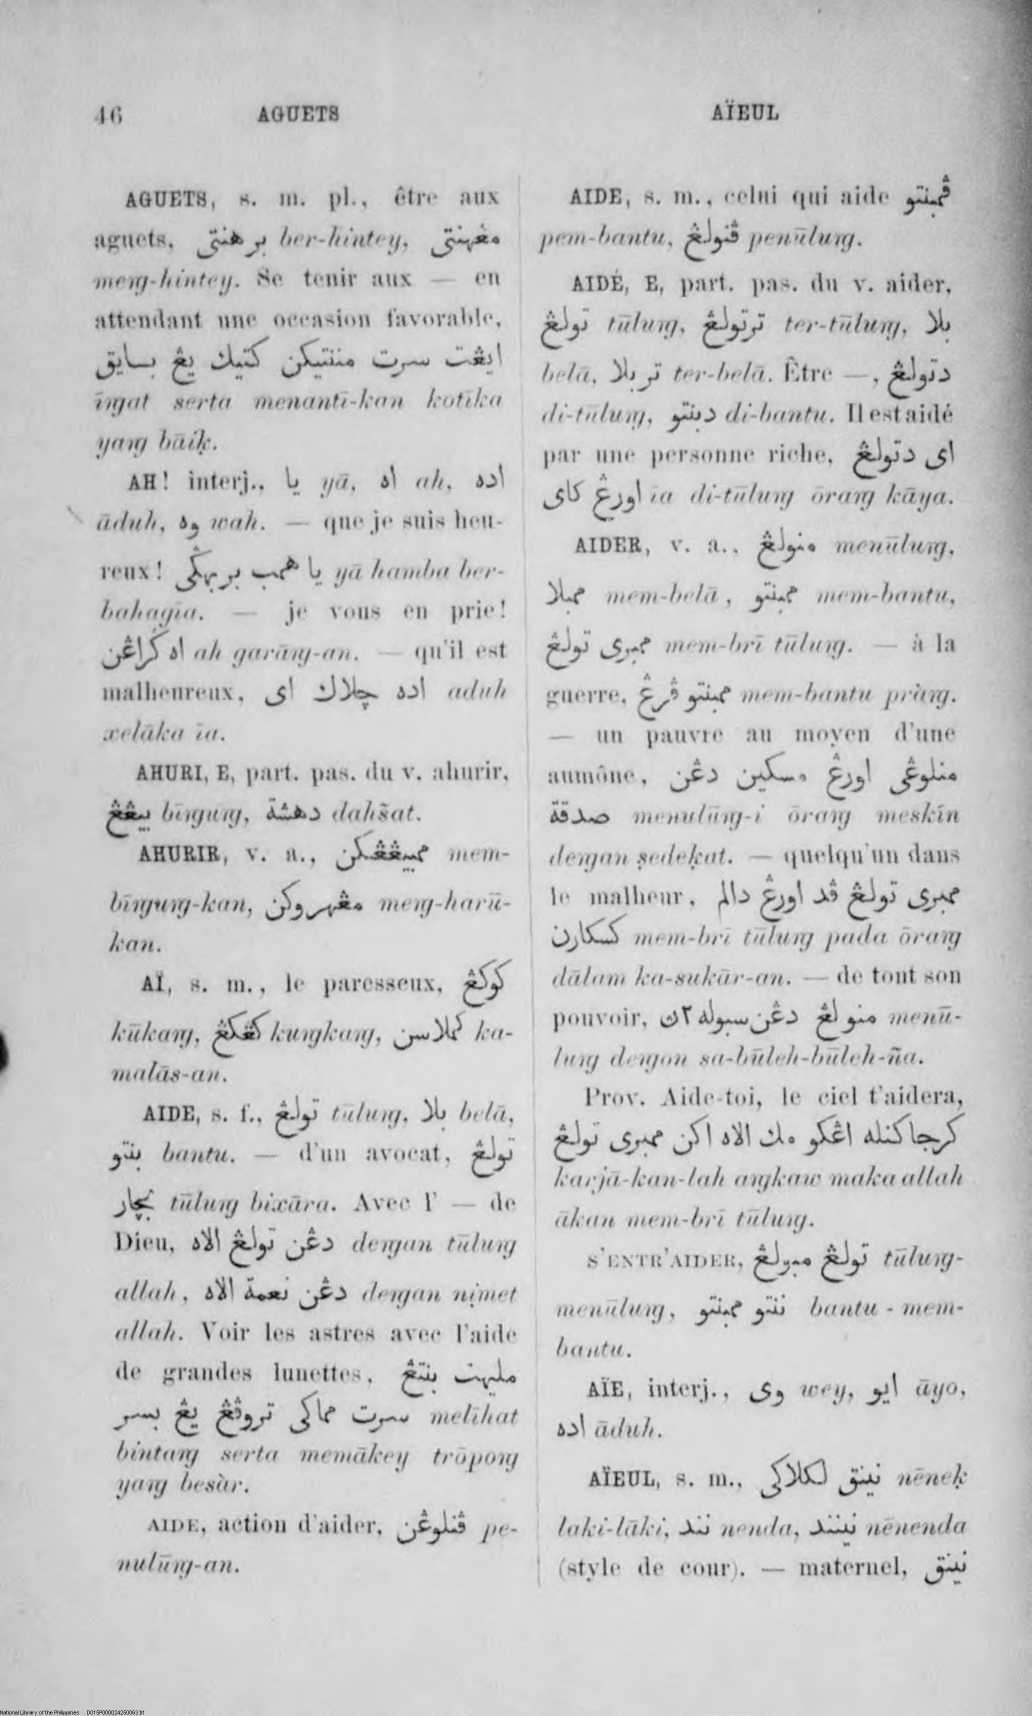 46 AGUETS AÏEUL
AGUETS, s. m. pl., être aux
aguets, بر هنتى ber-hintey, مڠهنتى
meng-hintey. Se tenir aux — en
attendant une occasion favorable,
ايڠت سرت مننتيكن كتيك يڠ بسايق
īngat serta menantī-kan kotīka
yang bāiḳ.
AH! interj., يا yā, اه ah, اده
āduh, وه wah. — que je suis heu-
reux! يا همب بربهڬى yā hamba ber-
bahagīa. — je vous en prie!
اه ڬراڠن ah garāng-an. — qu'il est
malheureux, اده چلاك اى aduh
xelāka īa.
AHURI, E, part. pas. du v. ahurir,
بيڠڠ bīngung, دهشة dahšat.
AHURIR, v. a., ممبيڠڠكن mem-
bīngung-kan, مڠهروكن meng-harū-
kan.
AÏ, s. m., le paresseux, كوكڠ
kūkang, كڠكڠ kungkang, كملاسن ka-
malās-an.
AIDE, s. f., تولڠ tūlung, بلا belā,
بنتو bantu. — d'un avocat, تولڠ
بچار tūlung bixāra. Avec l' — de
Dieu, دڠن تولڠ الاه dengan tūlung
allah, دڠن نعمة الاه dengan niֽmet
allah. Voir les astres avec l'aide
de grandes lunettes, مليهت بنتڠ
سرت مماكى تروڤڠ يڠ بسر melīhat
bintang serta memākey trōpong
yang besàr.
AIDE, action d'aider, ڤنلوڠن pe-
nulūng-an.
AIDE, s. m., celui qui aide ڤمبنتو
pem-bantu, ڤنولڠ penūlung.
AIDÉ, E, part. pas. du v. aider,
تولڠ tūlung, ترتولڠ ter-tūlung, بلا
belā, تربلا ter-belā. Être —, دتولڠ
di-tūlung, دبنتو di-bantu. Il est aidé
par une personne riche, اى دتولڠ
اورڠ كاى īa di-tūlung ōrang kāya.
AIDER, v. a., منولڠ menūlung,
ممبلا mem-belā, ممبنتو mem-bantu,
ممبرى تولڠ mem-brī tūlung. — à la
guerre, ممبنتو ڤرڠ mem-bantu pràng.
— un pauvre au moyen d'une
aumône, منلوڠى اورڠ مسكين دڠن
صدقة menulūng-i ōrang meskīn
dengan ṣedeḳat. — quelqu'un dans
le malheur, ممبرى تولڠ ڤد اورڠ دالم
كسكارن mem-brī tūlung pada ōrang
dālam ka-sukār-an. — de tout son
pouvoir, منولڠ دڠن سبوله٢ث menū-
lung dengon sa-būleh-būleh-ña.
Prov. Aide-toi, le ciel t'aidera,
كرجاكنله اڠكو مك الاه اكن ممبرى تولڠ
karjā-kan-lah angkaw maka allah
ākan mem-brī tūlung.
S'ENTR'AIDER, تولڠ منولڠ tūlung-
menūlung, بنتو ممبنتو bantu-mem-
bantu.
AÏE, interj., وى wey, ايو āyo,
اده āduh.
AÏEUL, s. m., نينق لكلاكى nēneḳ
laki-lāki, نند nenda, نينند nēnenda
(style de cour). — maternel, نينق
National Library of the Philippines